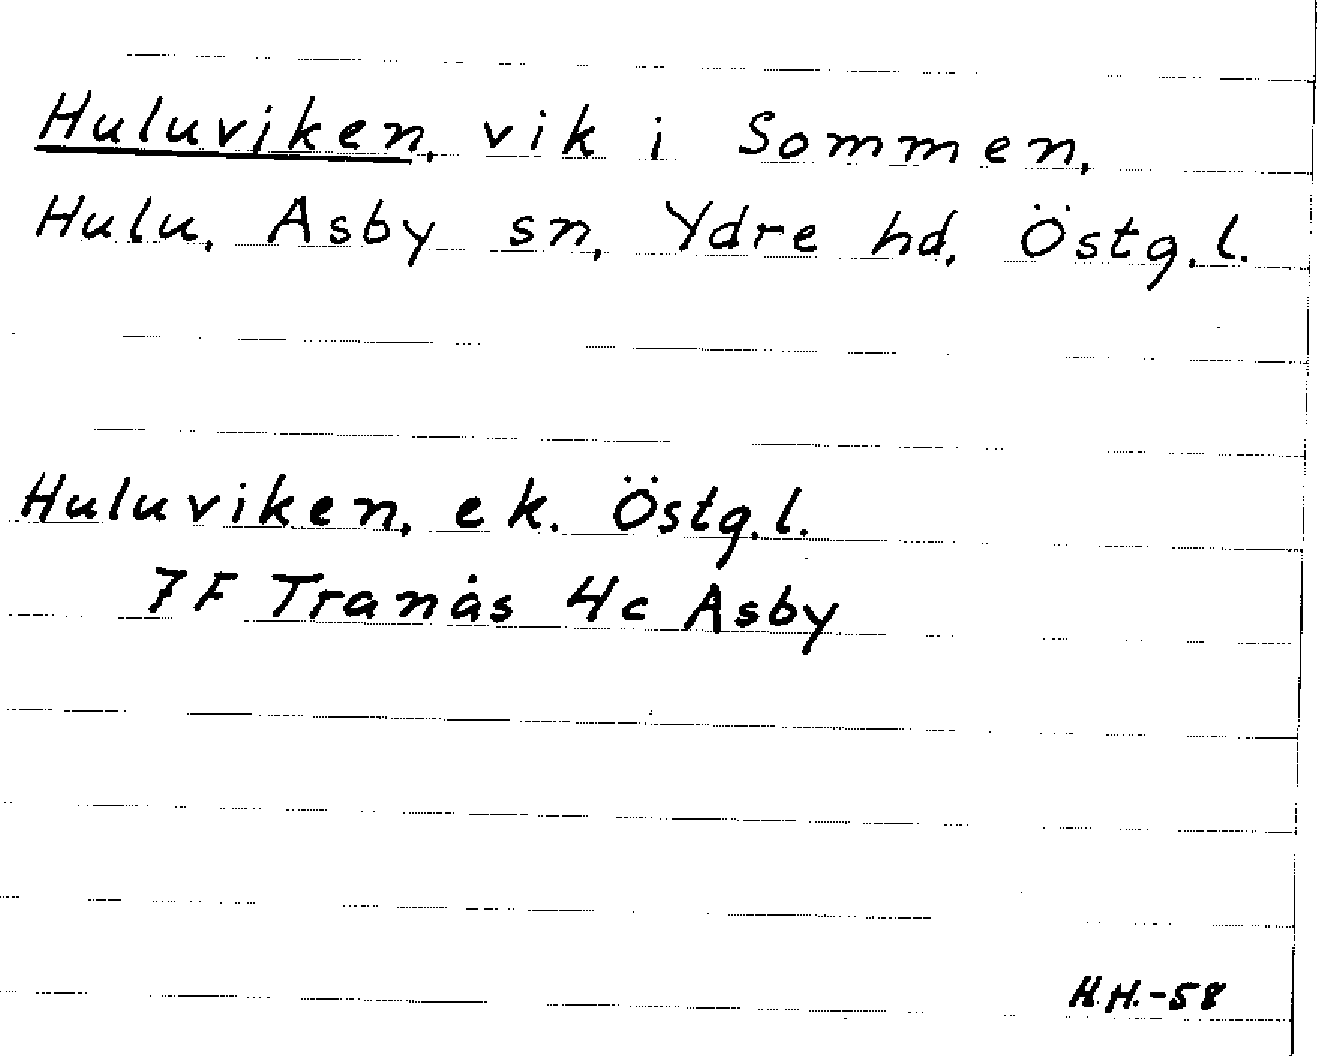 Huluviken, vik i Sommen,
Hulu, Asby sn, Ydre hd, Östg.l.
Huluviken, ek. Östg.l.
7F Tranås 4c Asby
H.H.-58